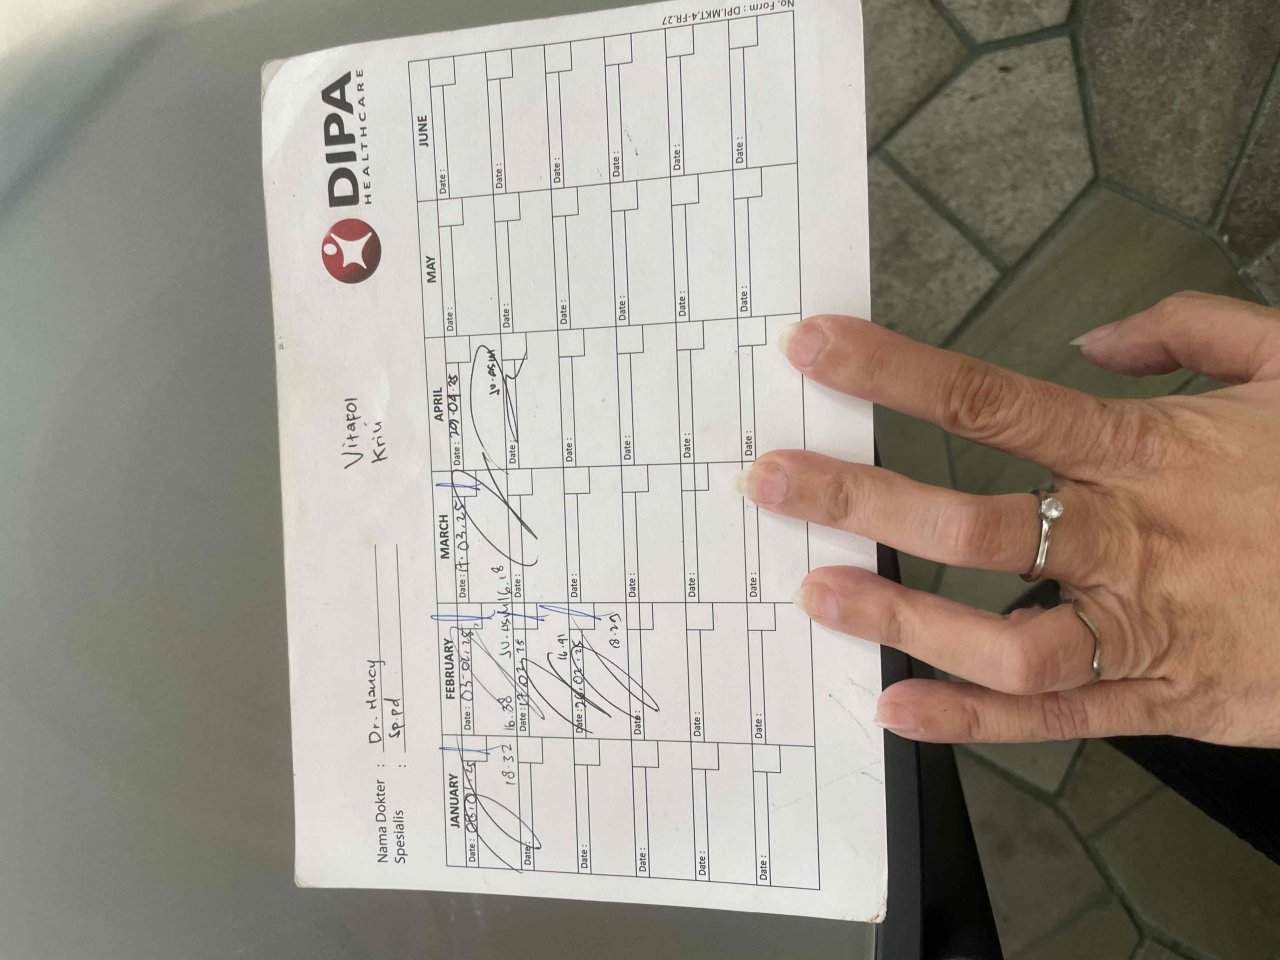 DIPA
HEALTHCARE
Nama Dokter : Dr. Haucy
Spesialis : Sp.pd
Vitafol
Kriu
JANUARY FEBRUARY MARCH APRIL MAY JUNE
Date : 06.01.25 Date : 03-02.25 Date : 17.03.25 Date : 29.04.25 Date : Date :
18.32 16.38 16.18
Date : Date : 17.02.25 Date : Date : Date : Date :
16.41
Date : Date : 26.02.25 Date : Date : Date : Date :
18.29
Date : Date : Date : Date : Date : Date :
Date : Date : Date : Date : Date : Date :
Date : Date : Date : Date : Date : Date :
No. Form : DPI.MKT.4-FR.27